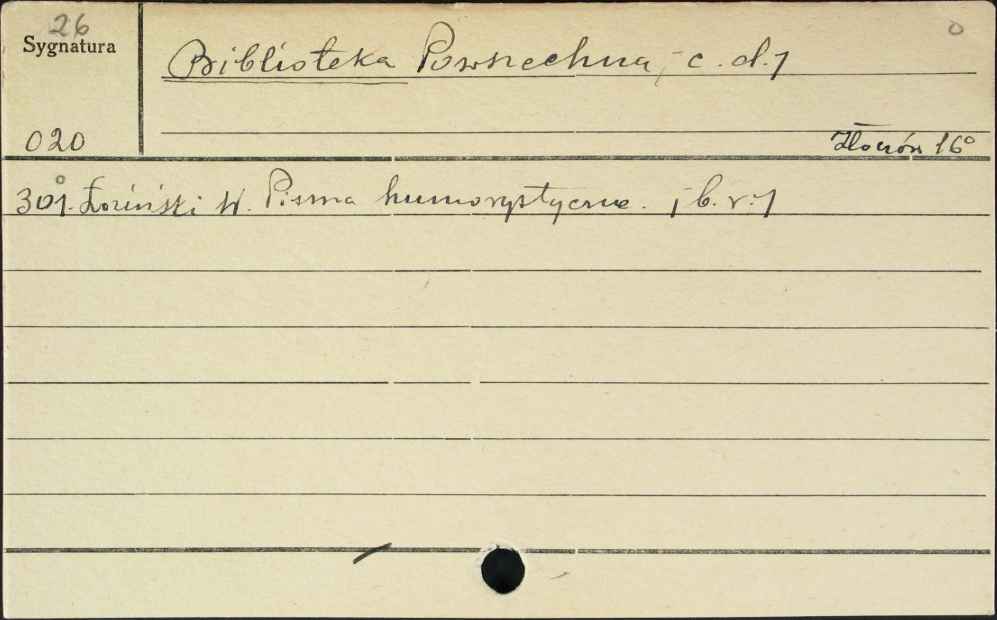 26
Sygnatura
Biblioteka Powszechna, [c. d.]
020
Złoczów 16°
301. Łoziński W. Pisma humorystyczne. [b. r.]